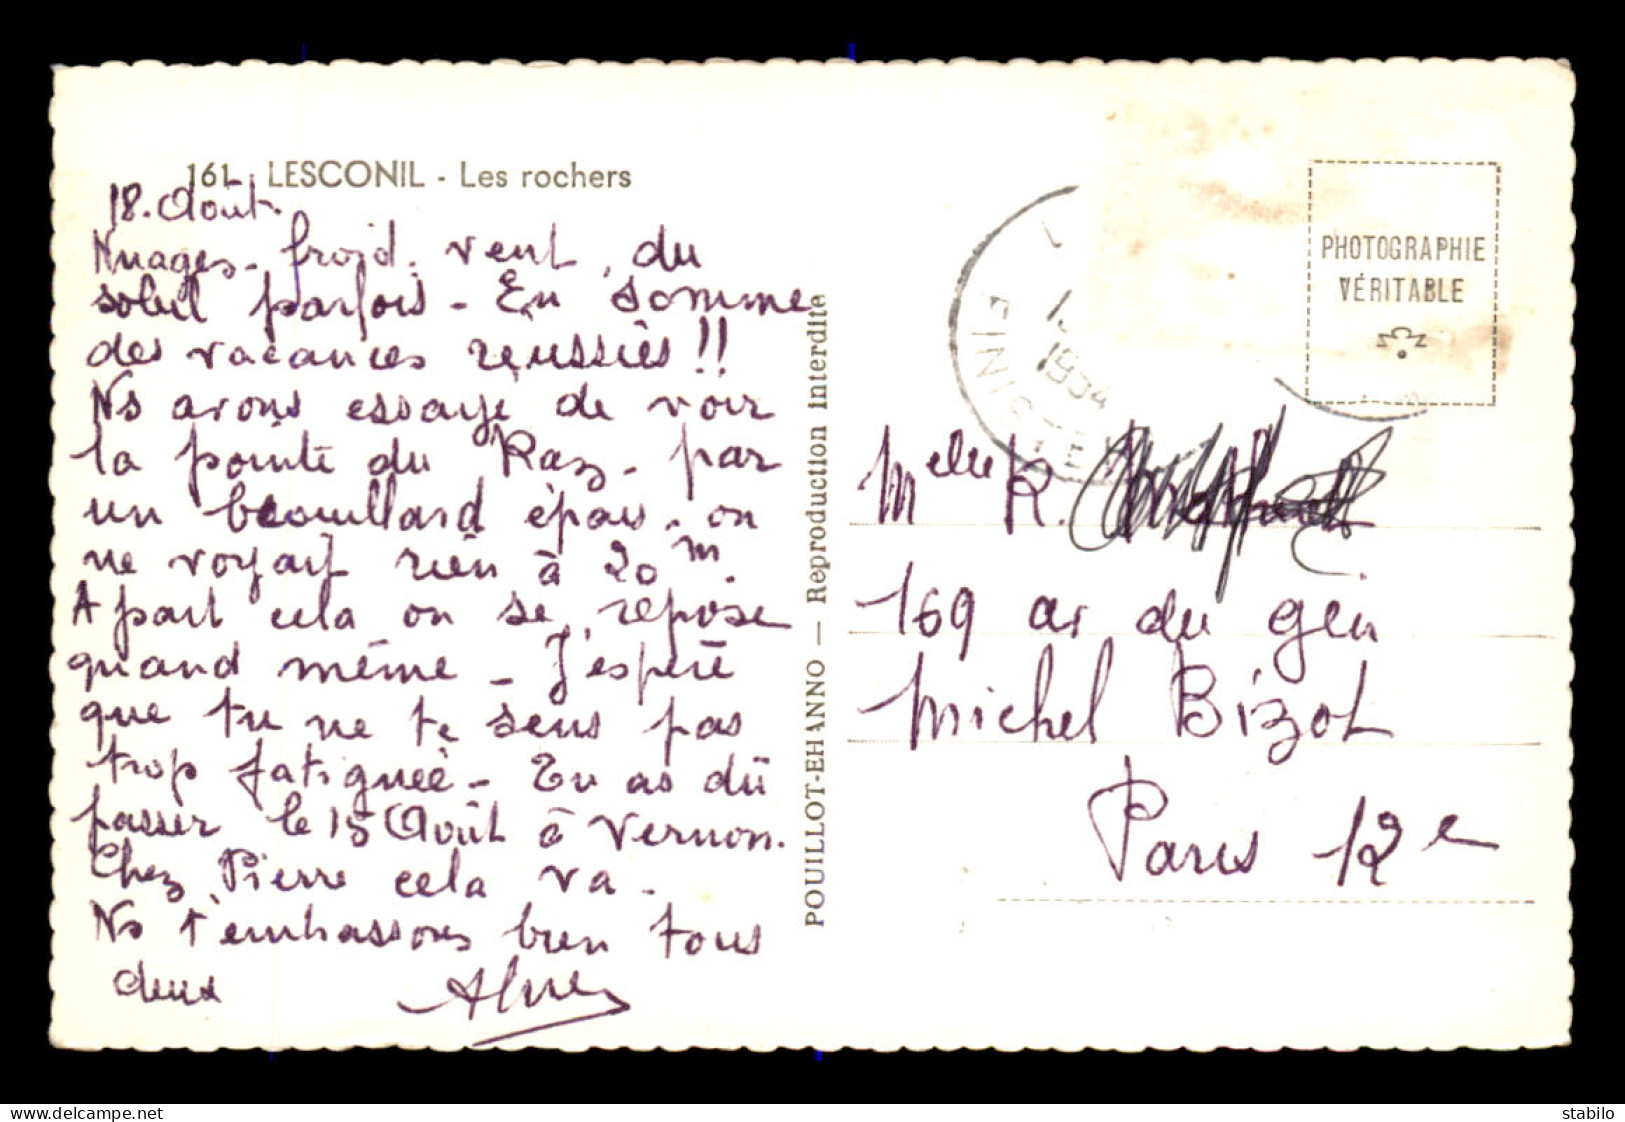 161 - LESCONIL - Les rochers
18. Août.
Nuages - froid. vent, du
soleil parfois - En somme
des vacances réussies !!
Ns avons essayé de voir
la pointe du Raz - par
un brouillard épais - on
ne voyait rien à 20 m.
A part cela on se repose
quand même - J'espère
que tu ne te sens pas
trop fatiguée - Tu as dû
passer le 15 Août à Vernon.
Chez Pierre cela va -
Ns t'embrassons bien tous
deux
POUILLOT-EHANNO — Reproduction interdite
1954
FINISTERE
PHOTOGRAPHIE
VÉRITABLE
Melle R.
169 av du gén
Michel Bizot
Paris 12e
delcampe.net
stabilo